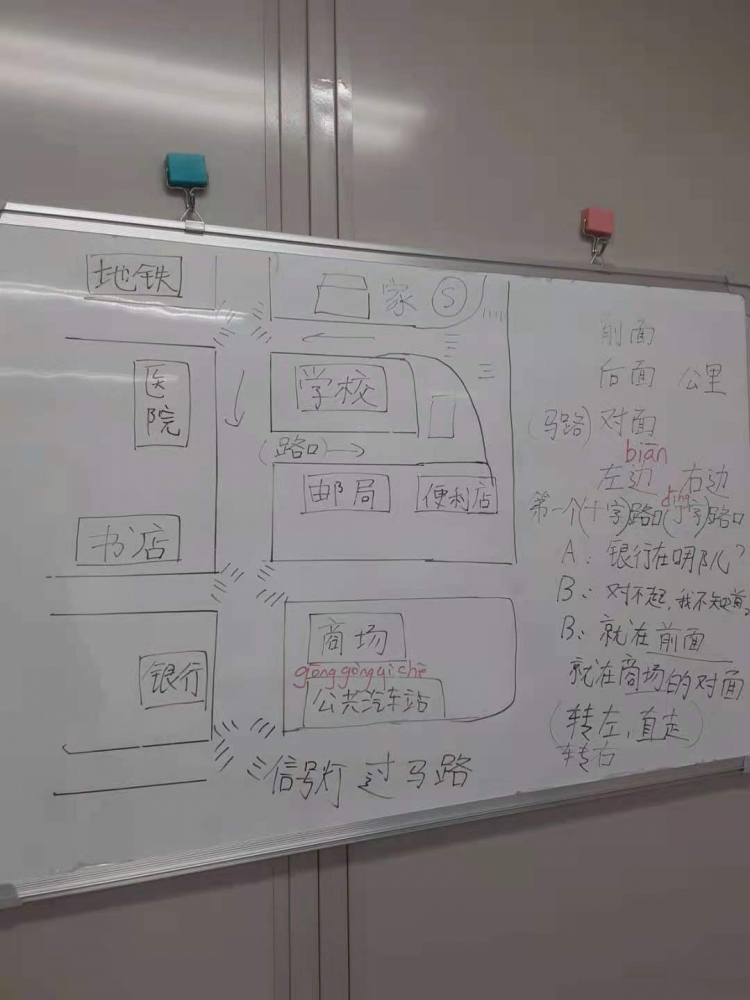 地铁
家 S
医院
学校
(路口)
邮局
便利店
书店
商场
gōng gòng qì chē
公共汽车站
银行
信号灯 过马路
前面
后面 公里
(马路) 对面
biān
左边 右边
dīng
第一个(十字)路口(丁字)路口
A: 银行在哪儿?
B: 对不起,我不知道。
B: 就在前面
就在商场的对面
(转左,直走)
转右